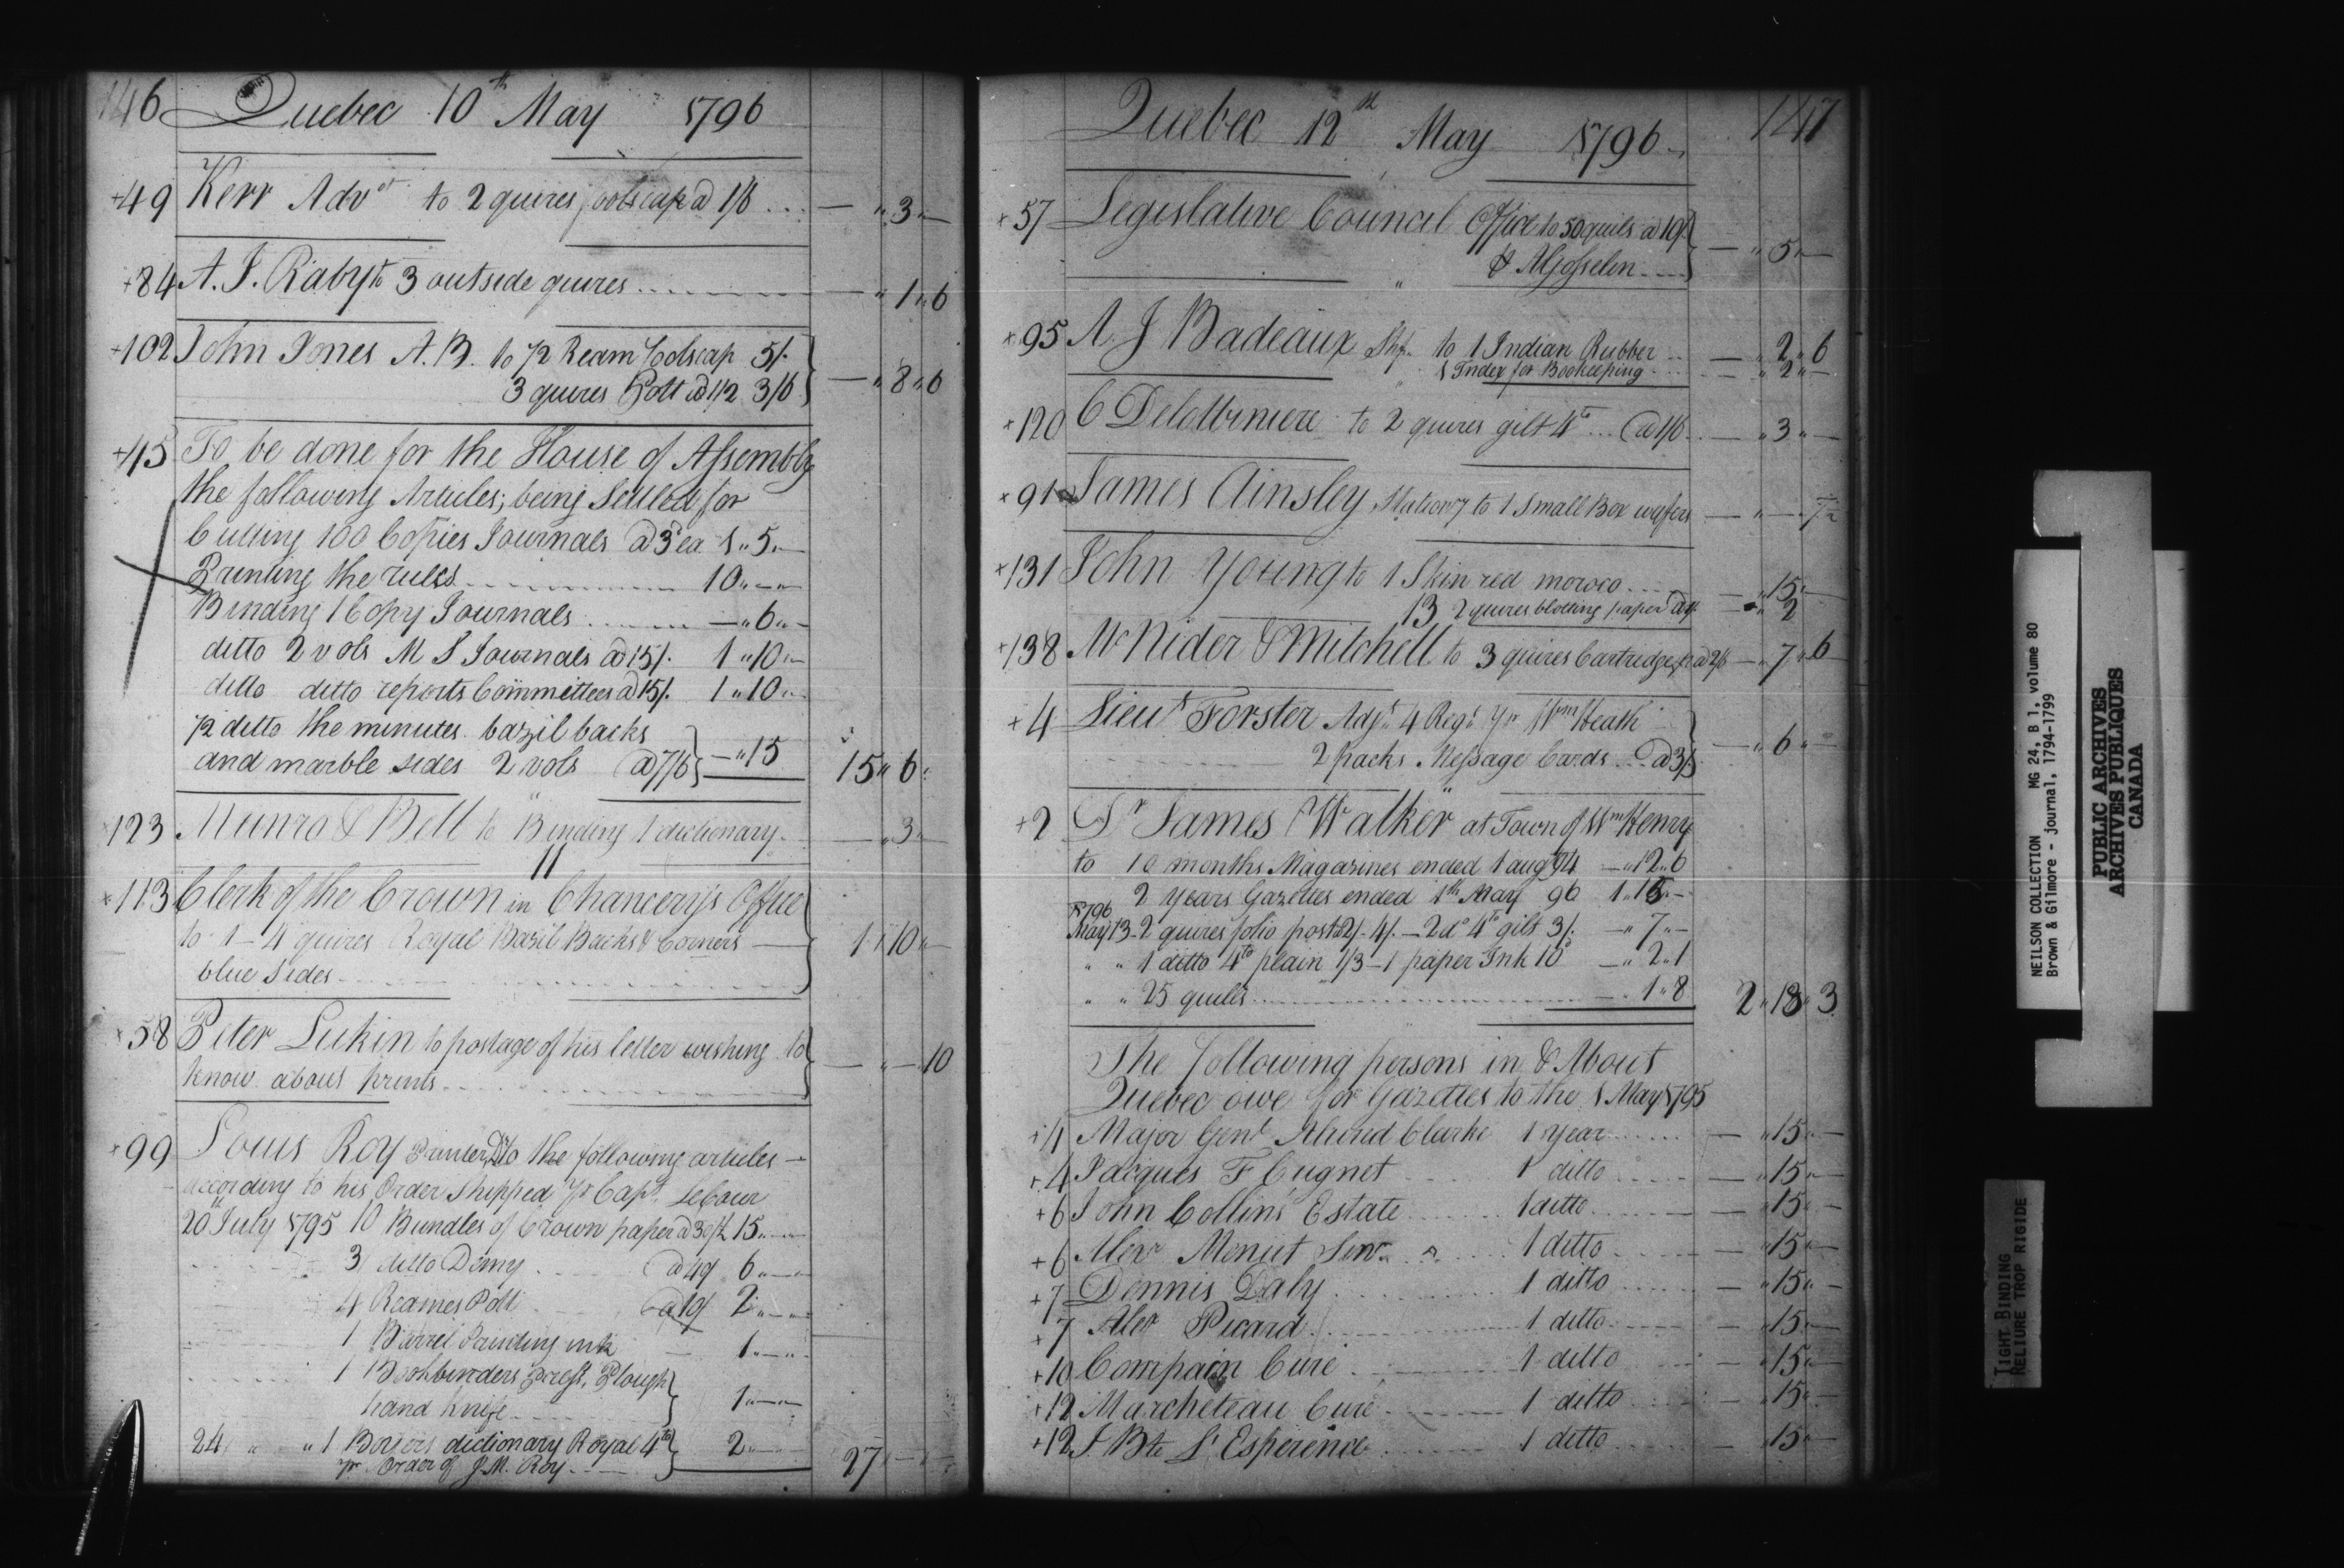 146 Quebec 10th May 1796
+49 Kerr Advt to 2 quires foolscap @ 1/6 .... — " 3 " —
+84 A. J. Raby to 3 outside quires .... — " 1 " 6
+102 John Jones A. B. to 1/2 Ream Foolscap 5/.
3 quires Pott @ 1/2 3/6 } — " 8 " 6
+45 To be done for the House of Assembly
the following Articles; being Settled for
Cutting 100 Copies Journals @ 3d ea 1 " 5 " —
Printing the rules .... 10 " — " —
Binding 1 Copy Journals .... — " 6 " —
ditto 2 vols M S Journals @ 15/. 1 " 10 " —
ditto ditto reports Committees @ 15/. 1 " 10 " —
1/2 ditto the minutes bazil backs
and marble sides 2 vols @ 7/6 } — " 15 15 " 6 "
+123 Munro & Bell to Binding 1 dictionary — " 3 " —
+113 Clerk of the Crown in Chancery's Office
to 1 - 4 quires Royal Bazil Backs & Corners —
blue sides .... } 1 " 10 " —
+58 Peter Lukin to postage of his letter wishing to
know about prints .... } — " — " 10
+99 Louis Roy Printer to the following articles —
according to his Order Shipped pr Capt. Lebour
20th July 1795 10 Bundles of Crown paper @ 30/ 15 " — " —
3 ditto Dimy @ 40/ 6 " — " —
4 Reames Pott @ 10/ 2 " — " —
1 Barrel Printing ink — 1 " — " —
1 Bookbinders press, Plough
hand knife .... } 1 " — " —
24 " " 1 Boyers dictionary Royal 4to
pr Order of J. M. Roy .... } 2 " — " — 27 " — " —
Quebec 12th May 1796 147
+57 Legislative Council Office to 50 quils @ 10/
& A Gosselin .... } — " 5 " —
+95 A J Badeaux to 1 Indian Rubber .. — " 2 " 6
1 Index for Bookeeping .... — " 2 " —
+120 C Delotbiniere to 2 quires gilt 4to ... @ 1/6 .. — " 3 " —
+91 James Ainsley Stationry to 1 Small Box wafers — " — " 7 1/2
+131 John Young to 1 Skin red moroco .... — " 15 " —
13 2 quires blotting paper @ 1/ — " 2
+138 McNider & Mitchell to 3 quires Cartredge p @ 2/6 — " 7 " 6
+4 Lieut Forster Adjt 4 Regt pr Wm Heath
2 packs Message Cards ... @ 3/. } — " 6 " —
+2 Dr James Walker at Town of Wm Henry
to 10 months Magazines ended 1 aug 94 — " 12 " 6
2 years Gazettes ended 1th May 96 1 " 15 " —
1796
May 13 - 2 quires folio post 2/. 4/. — 2 do 4to gilt 3/. — " 7 " —
" " 1 ditto 4to plain 1/3 — 1 paper Ink 10d — " 2 " 1
" " 25 quills .... — " 1 " 8 2 " 18 " 3
The following persons in & About
Quebec owe for Gazettes to the 1 May 1795
+1 Major Genl Alured Clarke 1 Year .... — " 15 " —
+4 Jacques F Cugnet 1 ditto .... — " 15 " —
+6 John Collins' Estate 1 ditto .... — " 15 " —
+6 Alexr Menut Senr 1 ditto .... — " 15 " —
+7 Dennis Daly 1 ditto .... — " 15 " —
+7 Alexr Picard 1 ditto .... — " 15 " —
+10 Compain Curé 1 ditto — " 15 " —
+12 Marcheteau Curé 1 ditto — " 15 " —
+12 J Bte L'Esperence 1 ditto — " 15 " —
NEILSON COLLECTION MG 24, B 1, volume 80
Brown & Gilmore - journal, 1794-1799
PUBLIC ARCHIVES
ARCHIVES PUBLIQUES
CANADA
TIGHT BINDING
RELIURE TROP RIGIDE